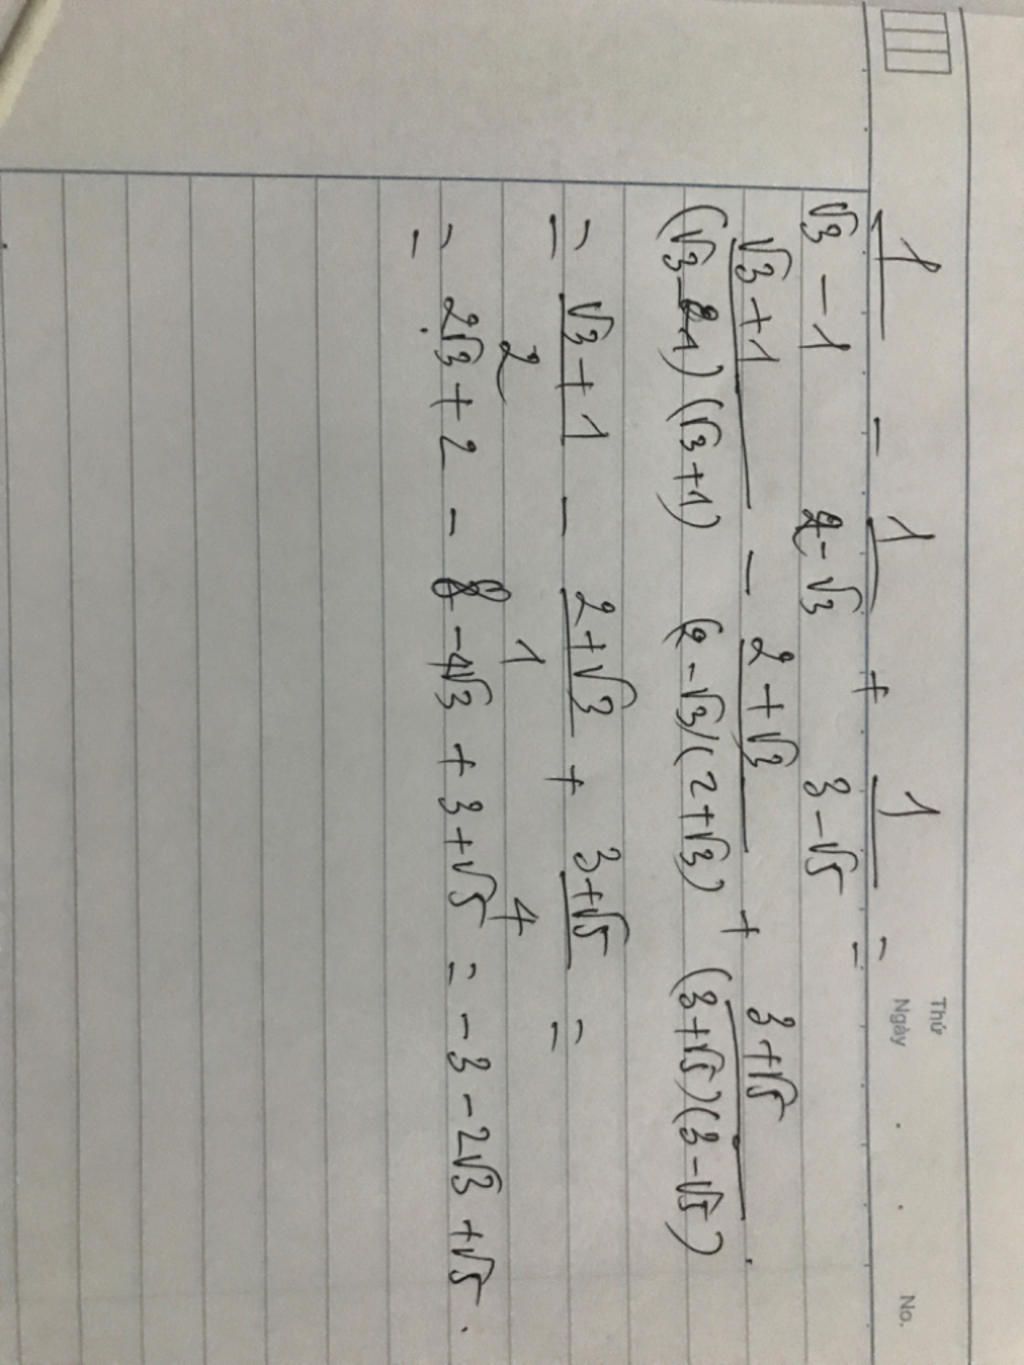 Thứ
Ngày No.
1/(√3 - 1) - 1/(2 - √3) + 1/(3 - √5) =
(√3 + 1)/((√3 - 1)(√3 + 1)) - (2 + √3)/((2 - √3)(2 + √3)) + (3 + √5)/((3 + √5)(3 - √5))
= (√3 + 1)/2 - (2 + √3)/1 + (3 + √5)/4 =
= 2√3 + 2 - 8 - 4√3 + 3 + √5 = -3 - 2√3 + √5.